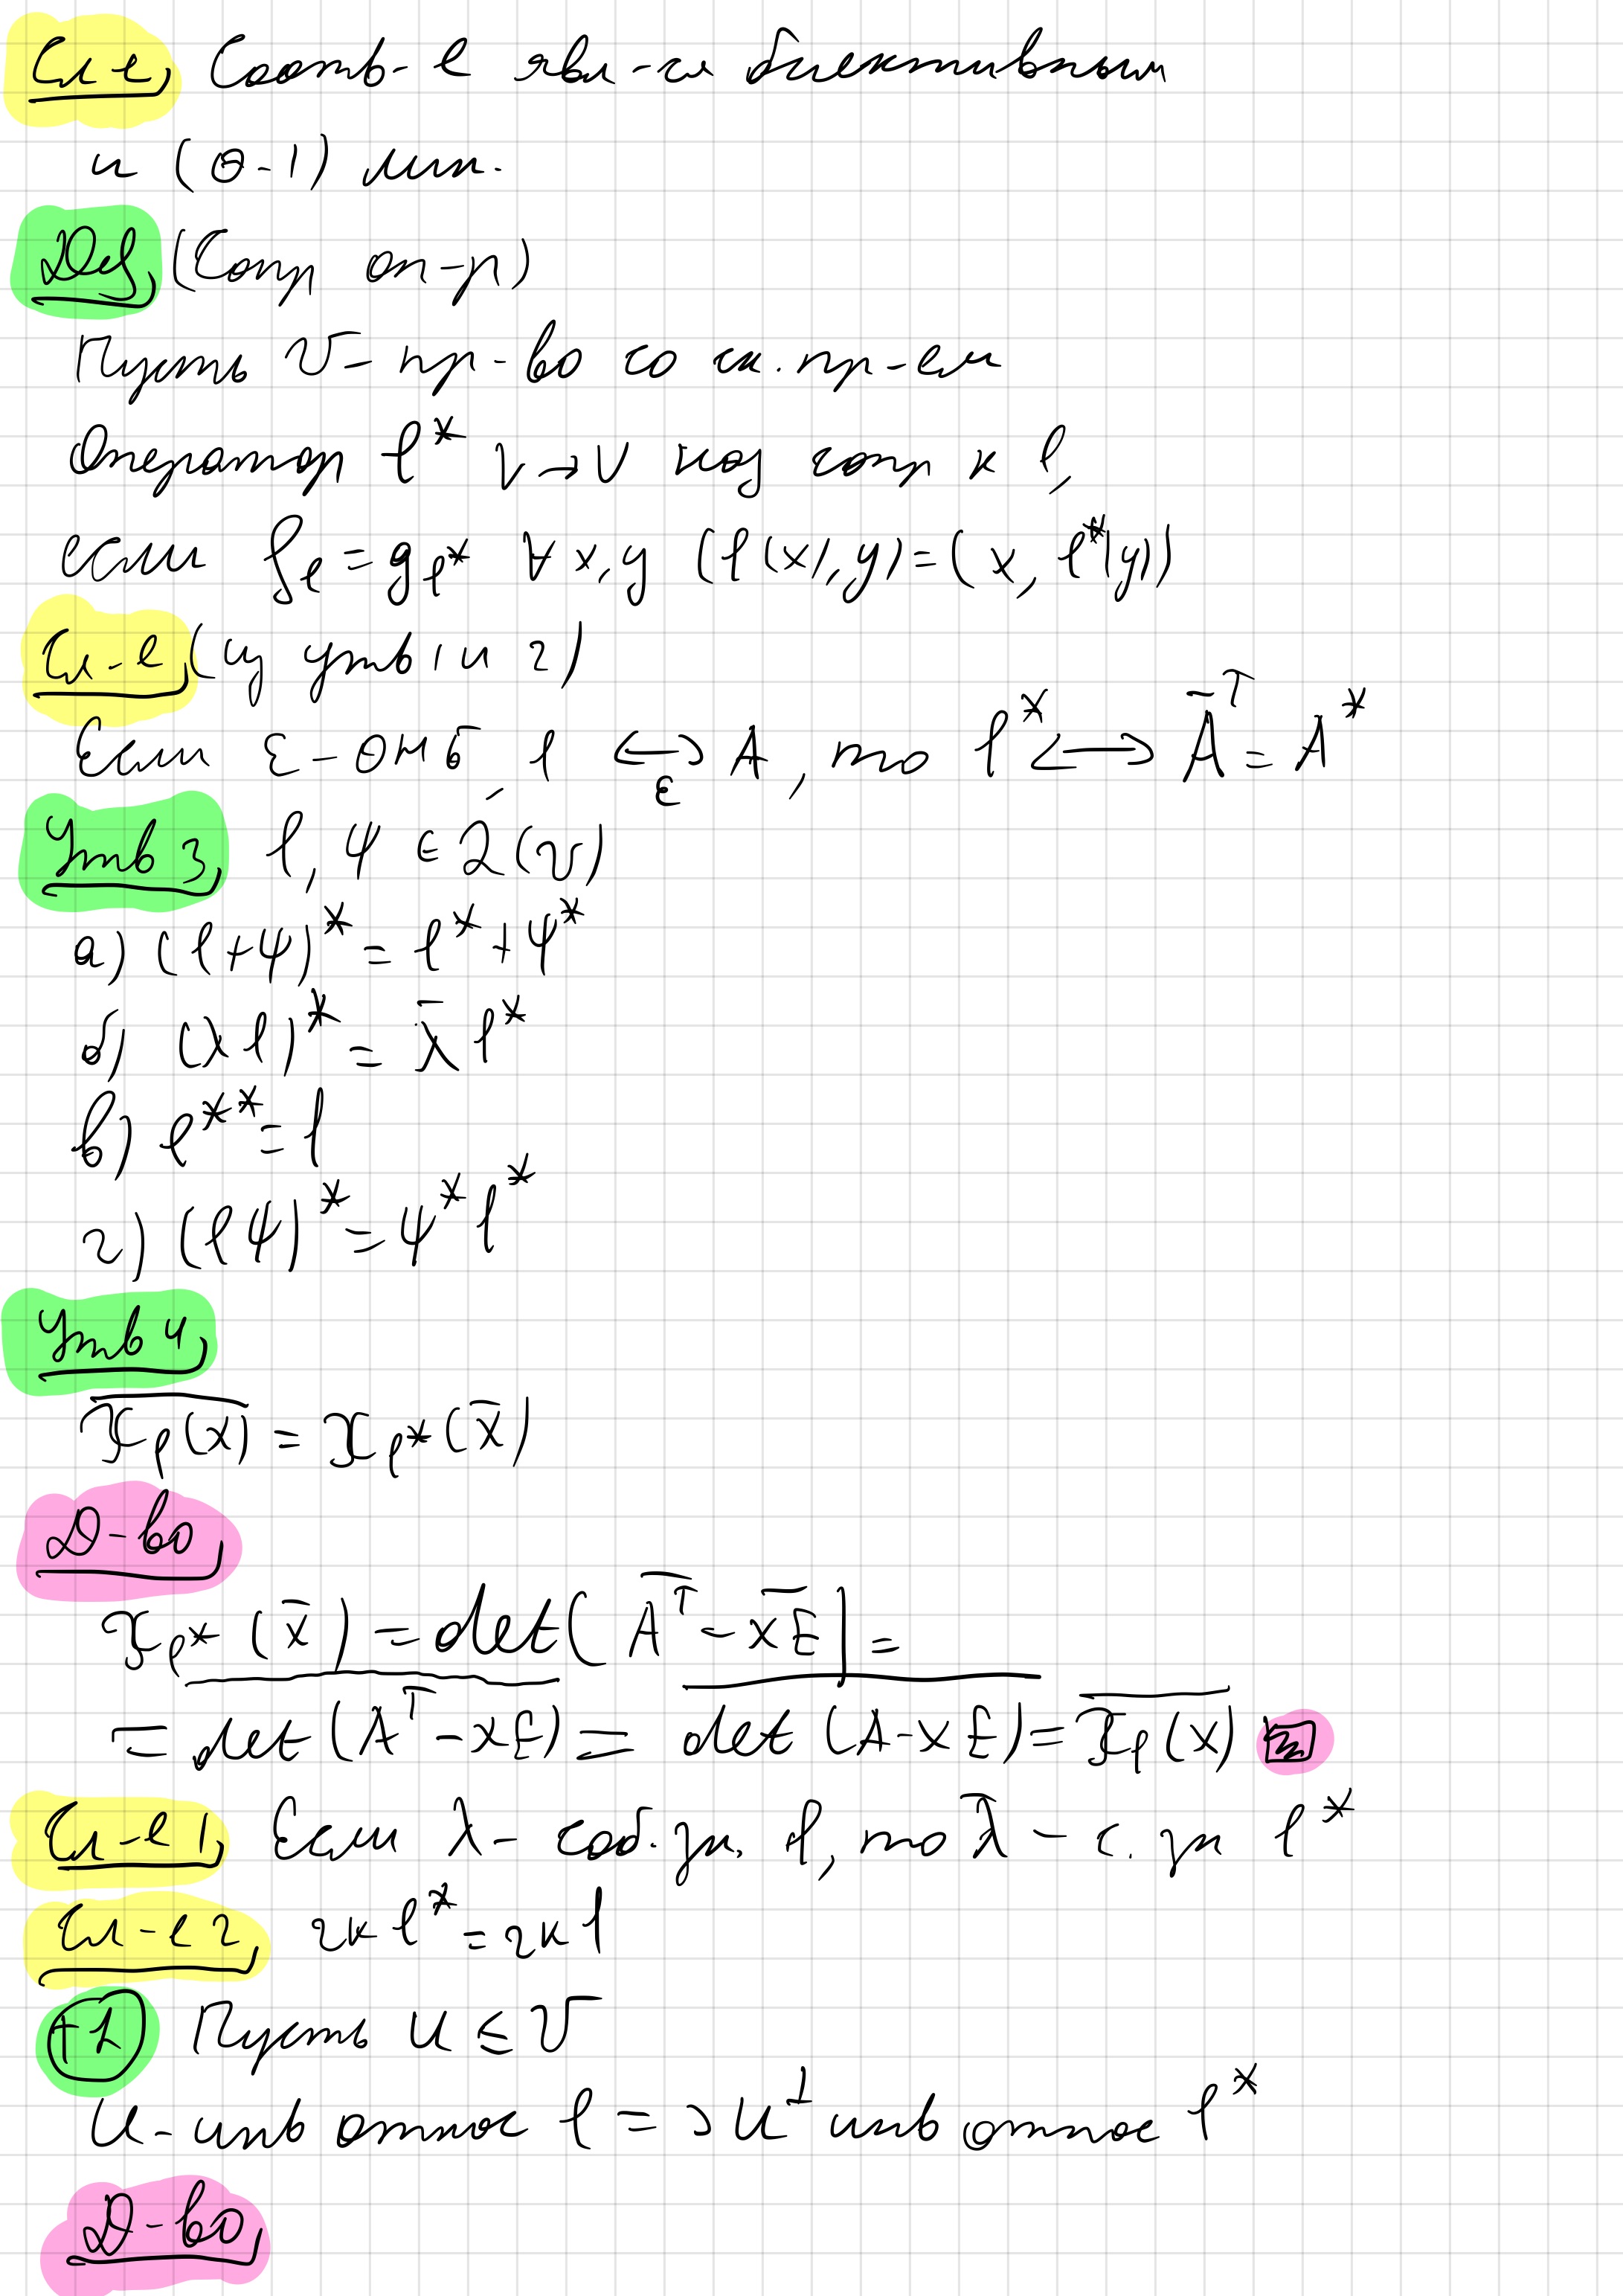 Сл-е, Соотв-е явл-ся биективным
и (θ-1) лин.
Def, (Сопр оп-р)
Пусть V - пр-во со ск. пр-ем
Оператор φ* V→V наз сопр к φ,
если f_φ = g_φ* ∀ x, y (φ(x), y) = (x, φ*(y))
Сл-е, (из утв 1 и 2)
Если ε - ОНБ φ ⟷_ε A, то φ* ⟷ A̅ᵀ = A*
Утв 3, φ, ψ ∈ ℒ(V)
а) (φ+ψ)* = φ* + ψ*
б) (λφ)* = λ̅ φ*
в) φ** = φ
г) (φψ)* = ψ* φ*
Утв 4,
\overline{χ_φ(x)} = χ_φ*(x̅)
Д-во,
χ_φ*(x̅) = det(\overline{Aᵀ} - \overline{x}E) =
= det(Aᵀ - xE) = det(A - xE) = \overline{χ_φ(x)}
Сл-е 1, Если λ - соб. зн. φ, то λ̅ - с. зн φ*
Сл-е 2, rk φ* = rk φ
т 1 Пусть U ≤ V
U - инв относ φ => U^⊥ инв относ φ*
Д-во,